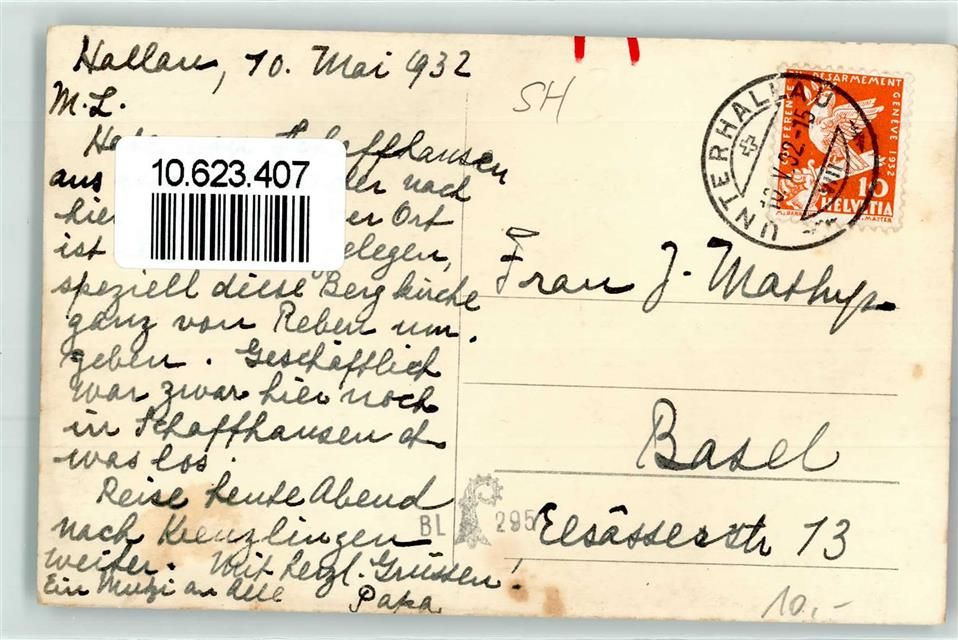 Hallau, 10. Mai 1932
M. L.
Schaffhausen
aus nach
Ort
ist gelegen,
speziell diese Bergkirche
ganz von Reben um-
geben. Geschäftlich
war zwar hier noch
in Schaffhausen et-
was los.
Reise heute Abend
nach Kreuzlingen
weiter. Mit herzl. Grüssen!
Ein Mutzi an alle Papa
10.623.407
SH
CONFERENCE DU DESARMEMENT GENEVE 1932
10
HELVETIA
UNTERHALLAU
10.V.32-15
VIII
Frau J. Mathys
Basel
Elsässerstr 13
BL 295
10.-